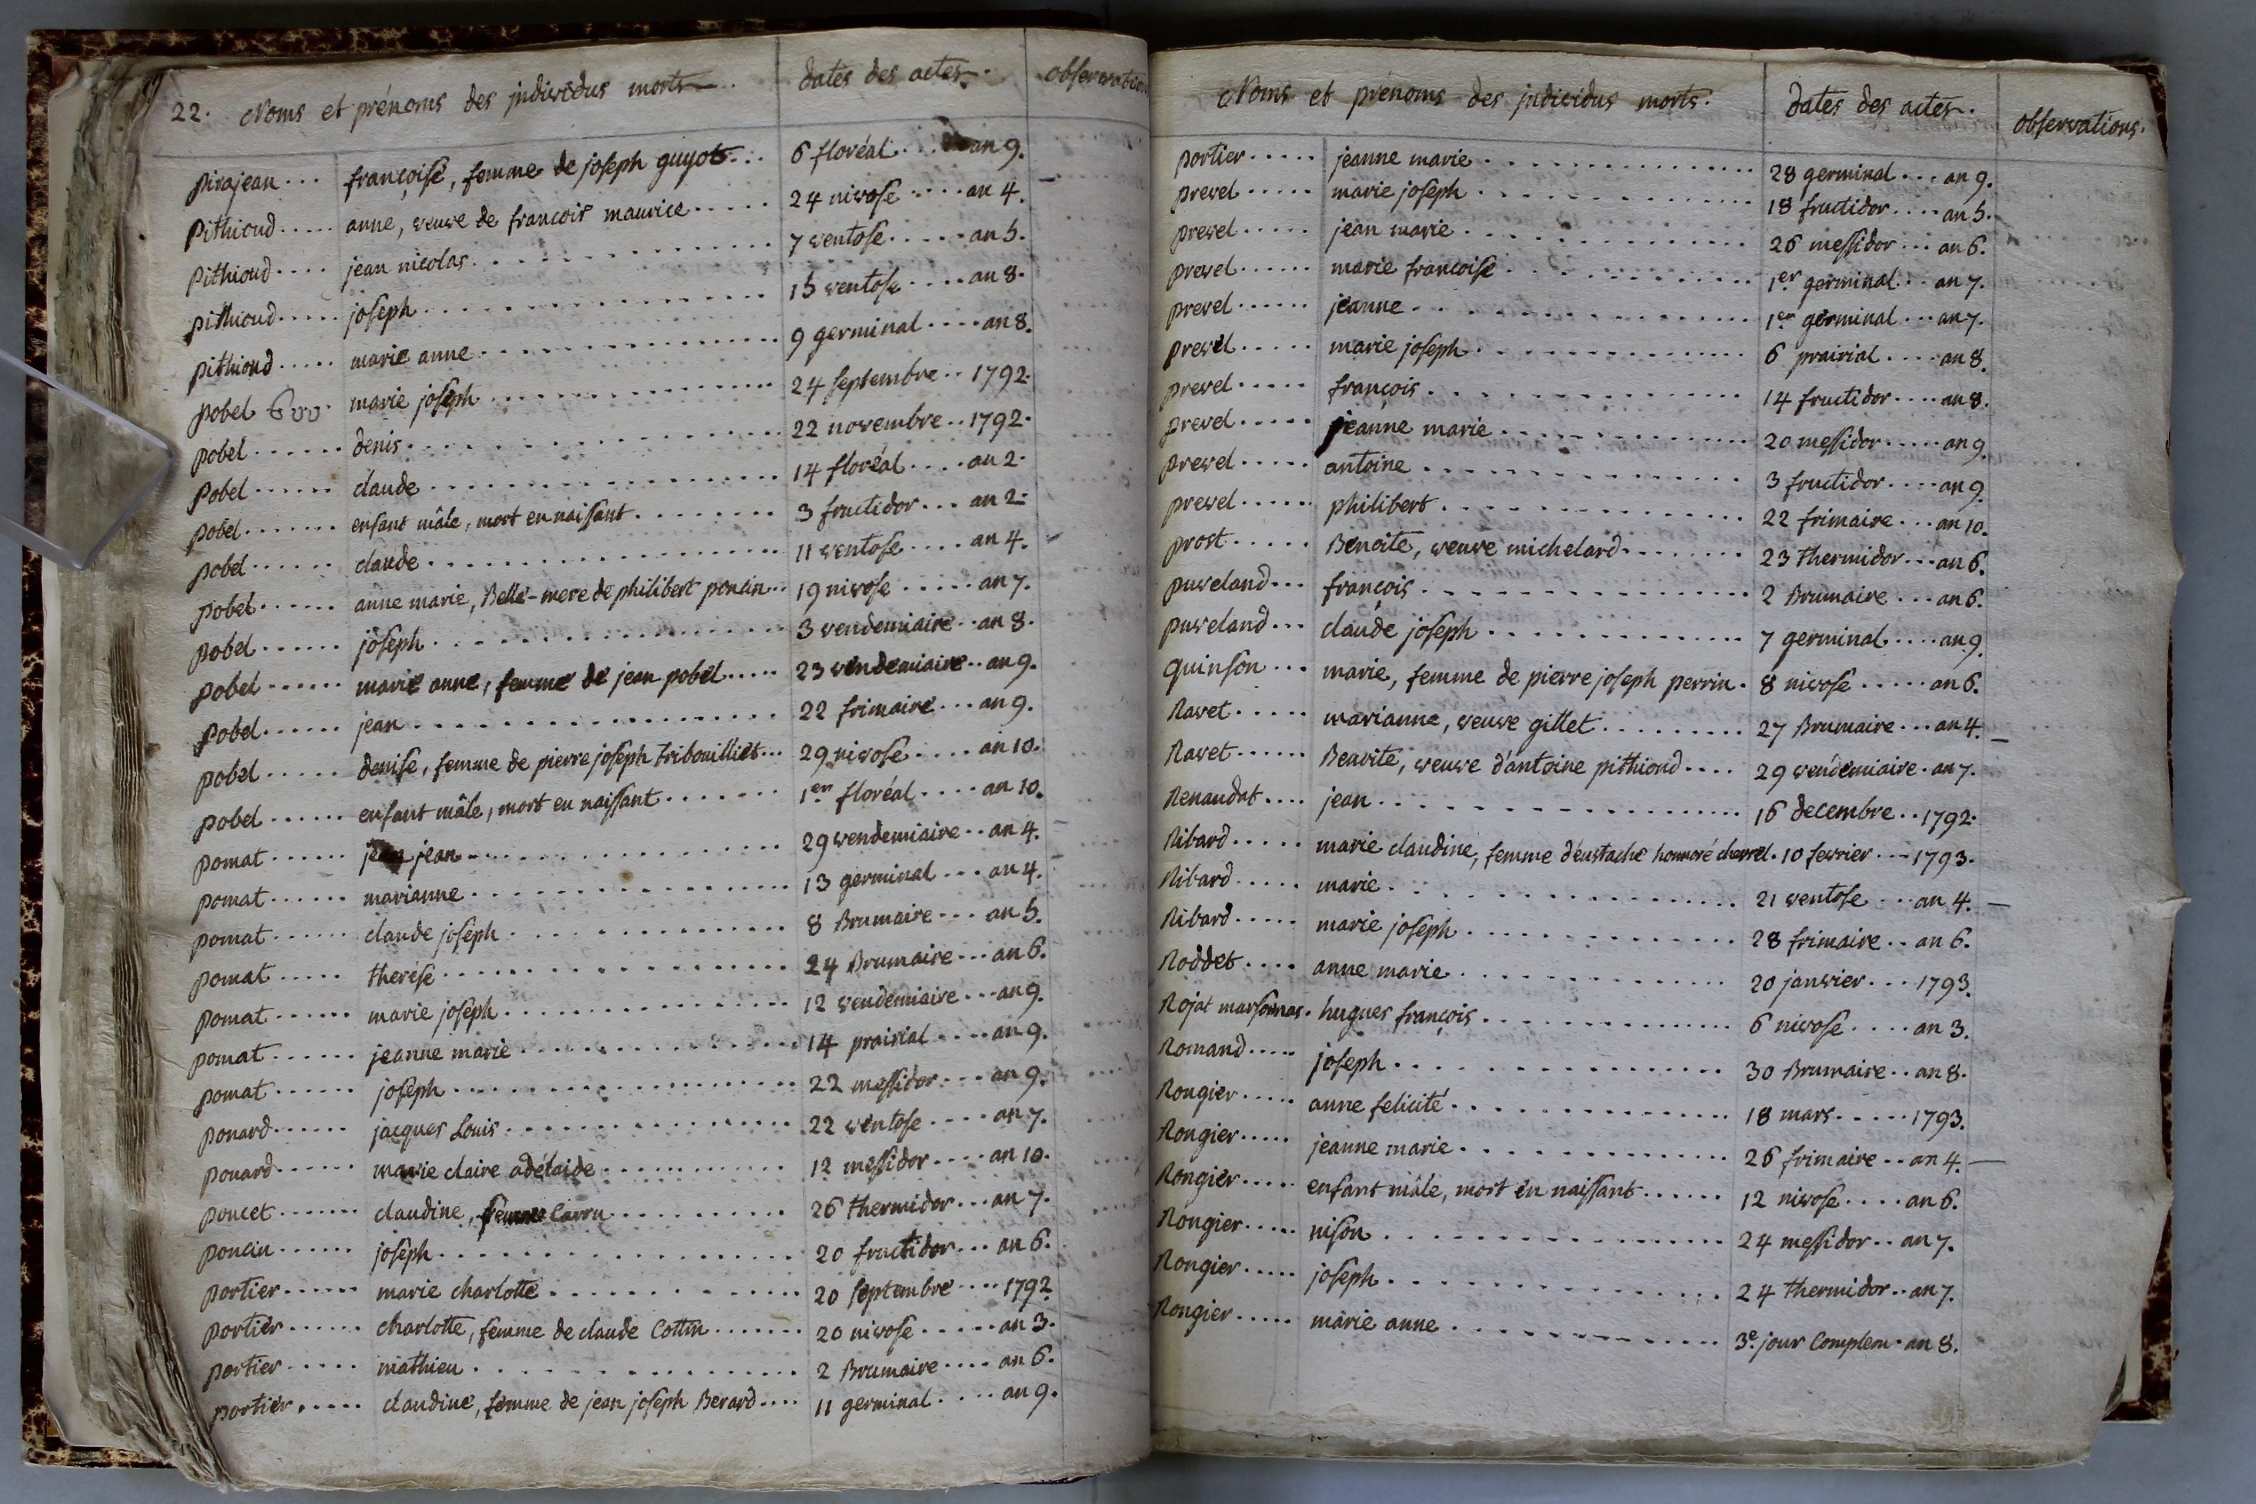 22. Noms et prénoms des individus morts. dates des actes. observations
pirajean... françoise, femme de joseph guyot... 6 floréal... an 9.
pithioud..... anne, veuve de françois maurice..... 24 nivose.... an 4.
pithioud.... jean nicolas. 7 ventose..... an 5.
pithioud..... joseph 15 ventose.... an 8.
pithioud..... marie anne 9 germinal.... an 8.
pobel marie joseph 24 septembre.. 1792.
pobel...... denis. 22 novembre.. 1792.
pobel...... claude 14 floréal.... an 2.
pobel...... enfant mâle, mort en naissant 3 fructidor... an 2.
pobel...... claude 11 ventose.... an 4.
pobel...... anne marie, Belle-mere de philibert poncin... 19 nivose..... an 7.
pobel...... joseph 3 vendemiaire.. an 8.
pobel...... marie anne, femme de jean pobel..... 23 vendemiaire.. an 9.
pobel...... jean 22 frimaire... an 9.
pobel..... denise, femme de pierre joseph tribouilliet... 29 nivose.... an 10.
pobel...... enfant mâle, mort en naissant 1er floréal.... an 10.
pomat...... jean 29 vendemiaire.. an 4.
pomat...... marianne 13 germinal... an 4.
pomat...... claude joseph 8 Brumaire... an 5.
pomat..... therése 24 Brumaire... an 6.
pomat...... marie joseph 12 vendemiaire... an 9.
pomat...... jeanne marie 14 prairial.... an 9.
pomat...... joseph 22 messidor... an 9.
ponard...... jacques Louis 22 ventose.... an 7.
ponard...... marie claire adélaide 12 messidor.... an 10.
poncet...... claudine, femme Carru 26 thermidor... an 7.
poncin...... joseph 20 fructidor... an 6.
portier...... marie charlotte 20 septembre.... 1792
portier...... charlotte, femme de claude Cottin 20 nivose..... an 3.
portier..... mathieu 2 Brumaire.... an 6.
portier..... claudine, femme de jean joseph Berard.... 11 germinal.... an 9.
Noms et prénoms des individus morts. dates des actes. observations.
portier..... jeanne marie 28 germinal... an 9.
prevel..... marie joseph 18 fructidor.... an 5.
prevel..... jean marie 26 messidor... an 6.
prevel...... marie françoise 1er germinal... an 7.
prevel...... jeanne 1er germinal... an 7.
prevel..... marie joseph 6 prairial.... an 8.
prevel..... françois 14 fructidor.... an 8.
prevel..... jeanne marie 20 messidor..... an 9.
prevel..... antoine 3 fructidor.... an 9.
prevel...... philibert 22 frimaire... an 10.
prost..... Benoite, veuve michelard 23 thermidor... an 6.
puveland... françois 2 Brumaire... an 6.
puveland... claude joseph 7 germinal.... an 9.
quinson... marie, femme de pierre joseph perrin. 8 nivose..... an 6.
Ravet..... marianne, veuve gillet 27 Brumaire... an 4.
Ravet...... Benoite, veuve d'antoine pithioud.... 29 vendemiaire. an 7.
Renaudat.... jean 16 decembre.. 1792.
Ribard..... marie claudine, femme d'eustache honnoré chevrel. 10 fevrier... 1793.
Ribard..... marie 21 ventose... an 4.
Ribard..... marie joseph 28 frimaire.. an 6.
Roddet.... anne marie 20 janvier... 1793.
Rojat marsonnas. hugues françois 6 nivose.... an 3.
Romand..... joseph 30 Brumaire.. an 8.
Rongier..... anne felicité 18 mars..... 1793.
Rongier..... jeanne marie 26 frimaire.. an 4.
Rongier..... enfant mâle, mort en naissant 12 nivose.... an 6.
Rongier..... nison 24 messidor.. an 7.
Rongier..... joseph 24 thermidor.. an 7.
Rongier..... marie anne 3e. jour Complem. an 8.